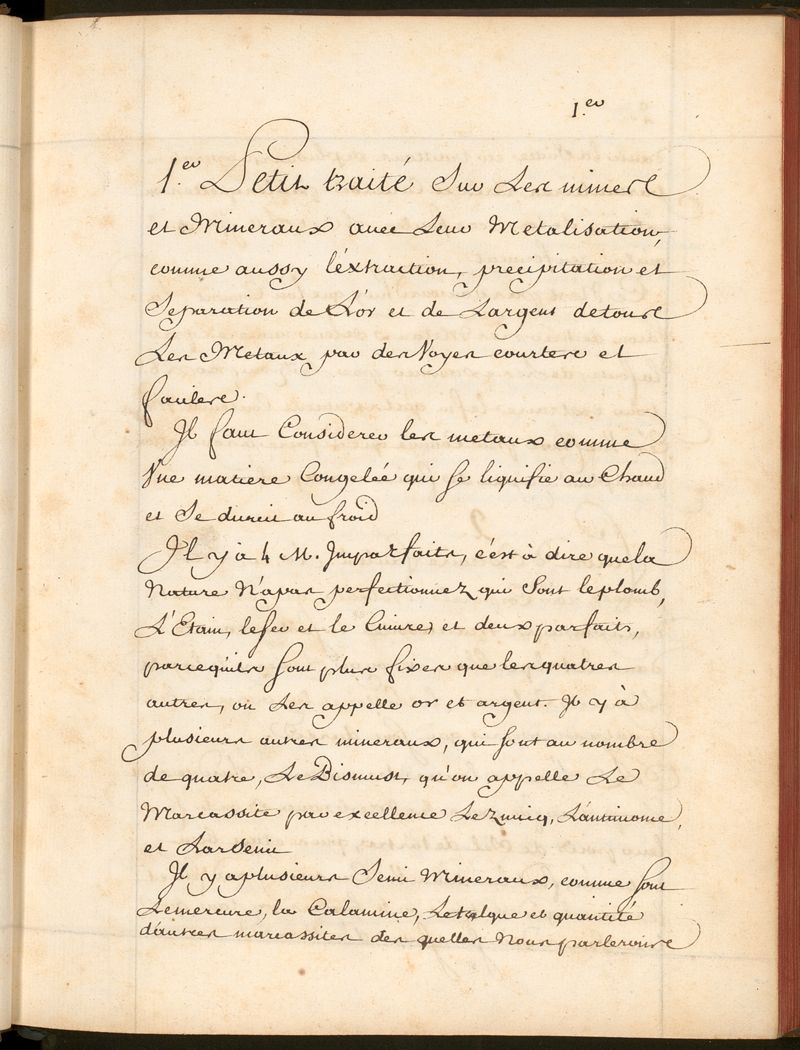 1.er
1.er Petit traité Sur Les mines
et Mineraux avec Leur Metalisation,
comme aussy l'éxtraction, precipitation et
Separation de L'or et de Largent de tous
Les Metaux par des Voyes courtes et
faciles.
Il faut Considerer les métaux comme
Vne matiere Congelée qui se liquifie au Chaud
et Se durcit au froid
Il y à 4 M. Imparfaits, c'est à dire que la
Nature N'a pas perfectionnez qui Sont le plomb,
L'Etain, le fer et le Cuivre, et deux parfaits,
parcequ'ils sont plus fixes que les quatres
autres, on Les appelle or et argent. Il y à
plusieurs autres mineraux, qui sont au nombre
de quatre, Le Bismust, qu'on appelle Le
Marcassite par excellence Le Zuicq, L'antimoine,
et L'arsenic
Il y a plusieurs Semi Mineraux, comme sont
Le mercure, la Calamine, Le talque et quantité
d'autres marcassites des quelles Nous parlerons